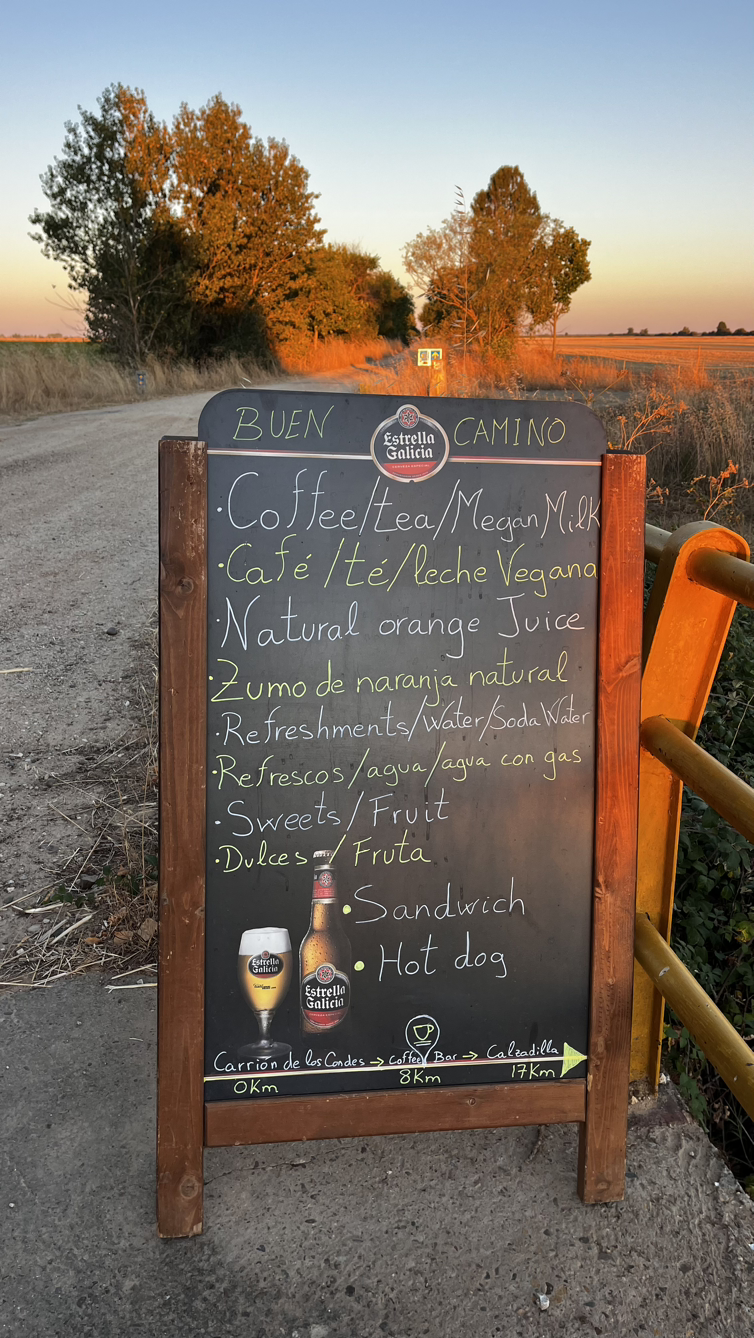 BUEN CAMINO
Estrella
Galicia
CERVEZA ESPECIAL
·Coffee/tea/Megan Milk
·Café/té/leche Vegana
·Natural orange Juice
·Zumo de naranja natural
·Refreshments/Water/Soda Water
·Refrescos/agua/agua con gas
·Sweets/Fruit
·Dulces/Fruta
·Sandwich
·Hot dog
Estrella
Galicia
Estrella
Galicia
Carrion de los Condes → Coffee Bar → Calzadilla
0Km 8Km 17Km